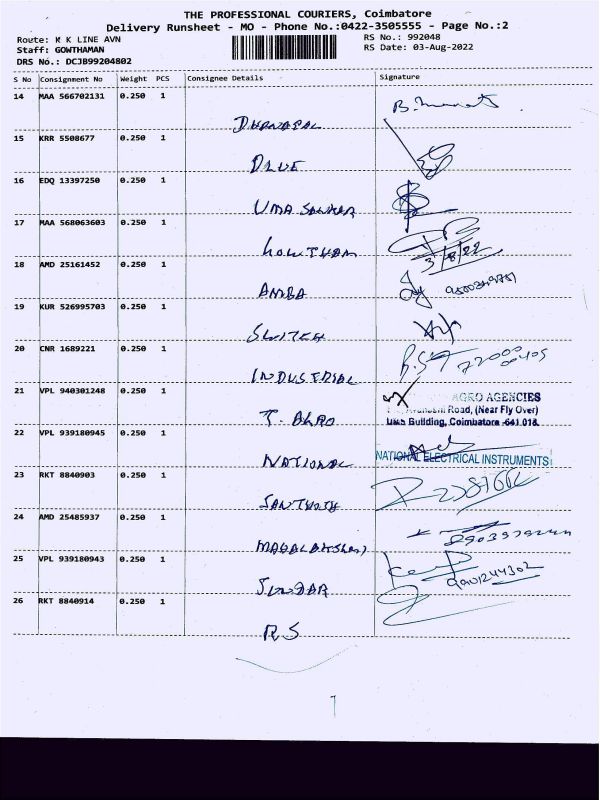 THE PROFESSIONAL COURIERS, Coimbatore
Delivery Runsheet - MO - Phone No.:0422-3505555 - Page No.:2
Route: K K LINE AVN
RS No.: 992048
Staff: GOWTHAMAN
RS Date: 03-Aug-2022
DRS No.: DCJB99204802
S No Consignment No Weight PCS Consignee Details Signature
14 MAA 566702131 0.250 1
DHANAPAL
15 KRR 5508677 0.250 1
DLUE
16 EDQ 13397250 0.250 1
UMA SANKAR
17 MAA 568063603 0.250 1
GOWTHAM 3/8/22
18 AMD 25161452 0.250 1
AMBA
19 KUR 526995703 0.250 1
SWITCH
20 CNR 1689221 0.250 1
INDUSTRIAL
21 VPL 940301248 0.250 1
AGRO AGENCIES
Road, (Near Fly Over)
T. AGRO
Building, Coimbatore -641 018.
22 VPL 939180945 0.250 1
NATIONAL
NATIONAL ELECTRICAL INSTRUMENTS
23 RKT 8840903 0.250 1
SANTHOSH
24 AMD 25485937 0.250 1
MAHALAKSHMI
25 VPL 939180943 0.250 1
SUNDAR
9901244302
26 RKT 8840914 0.250 1
RS